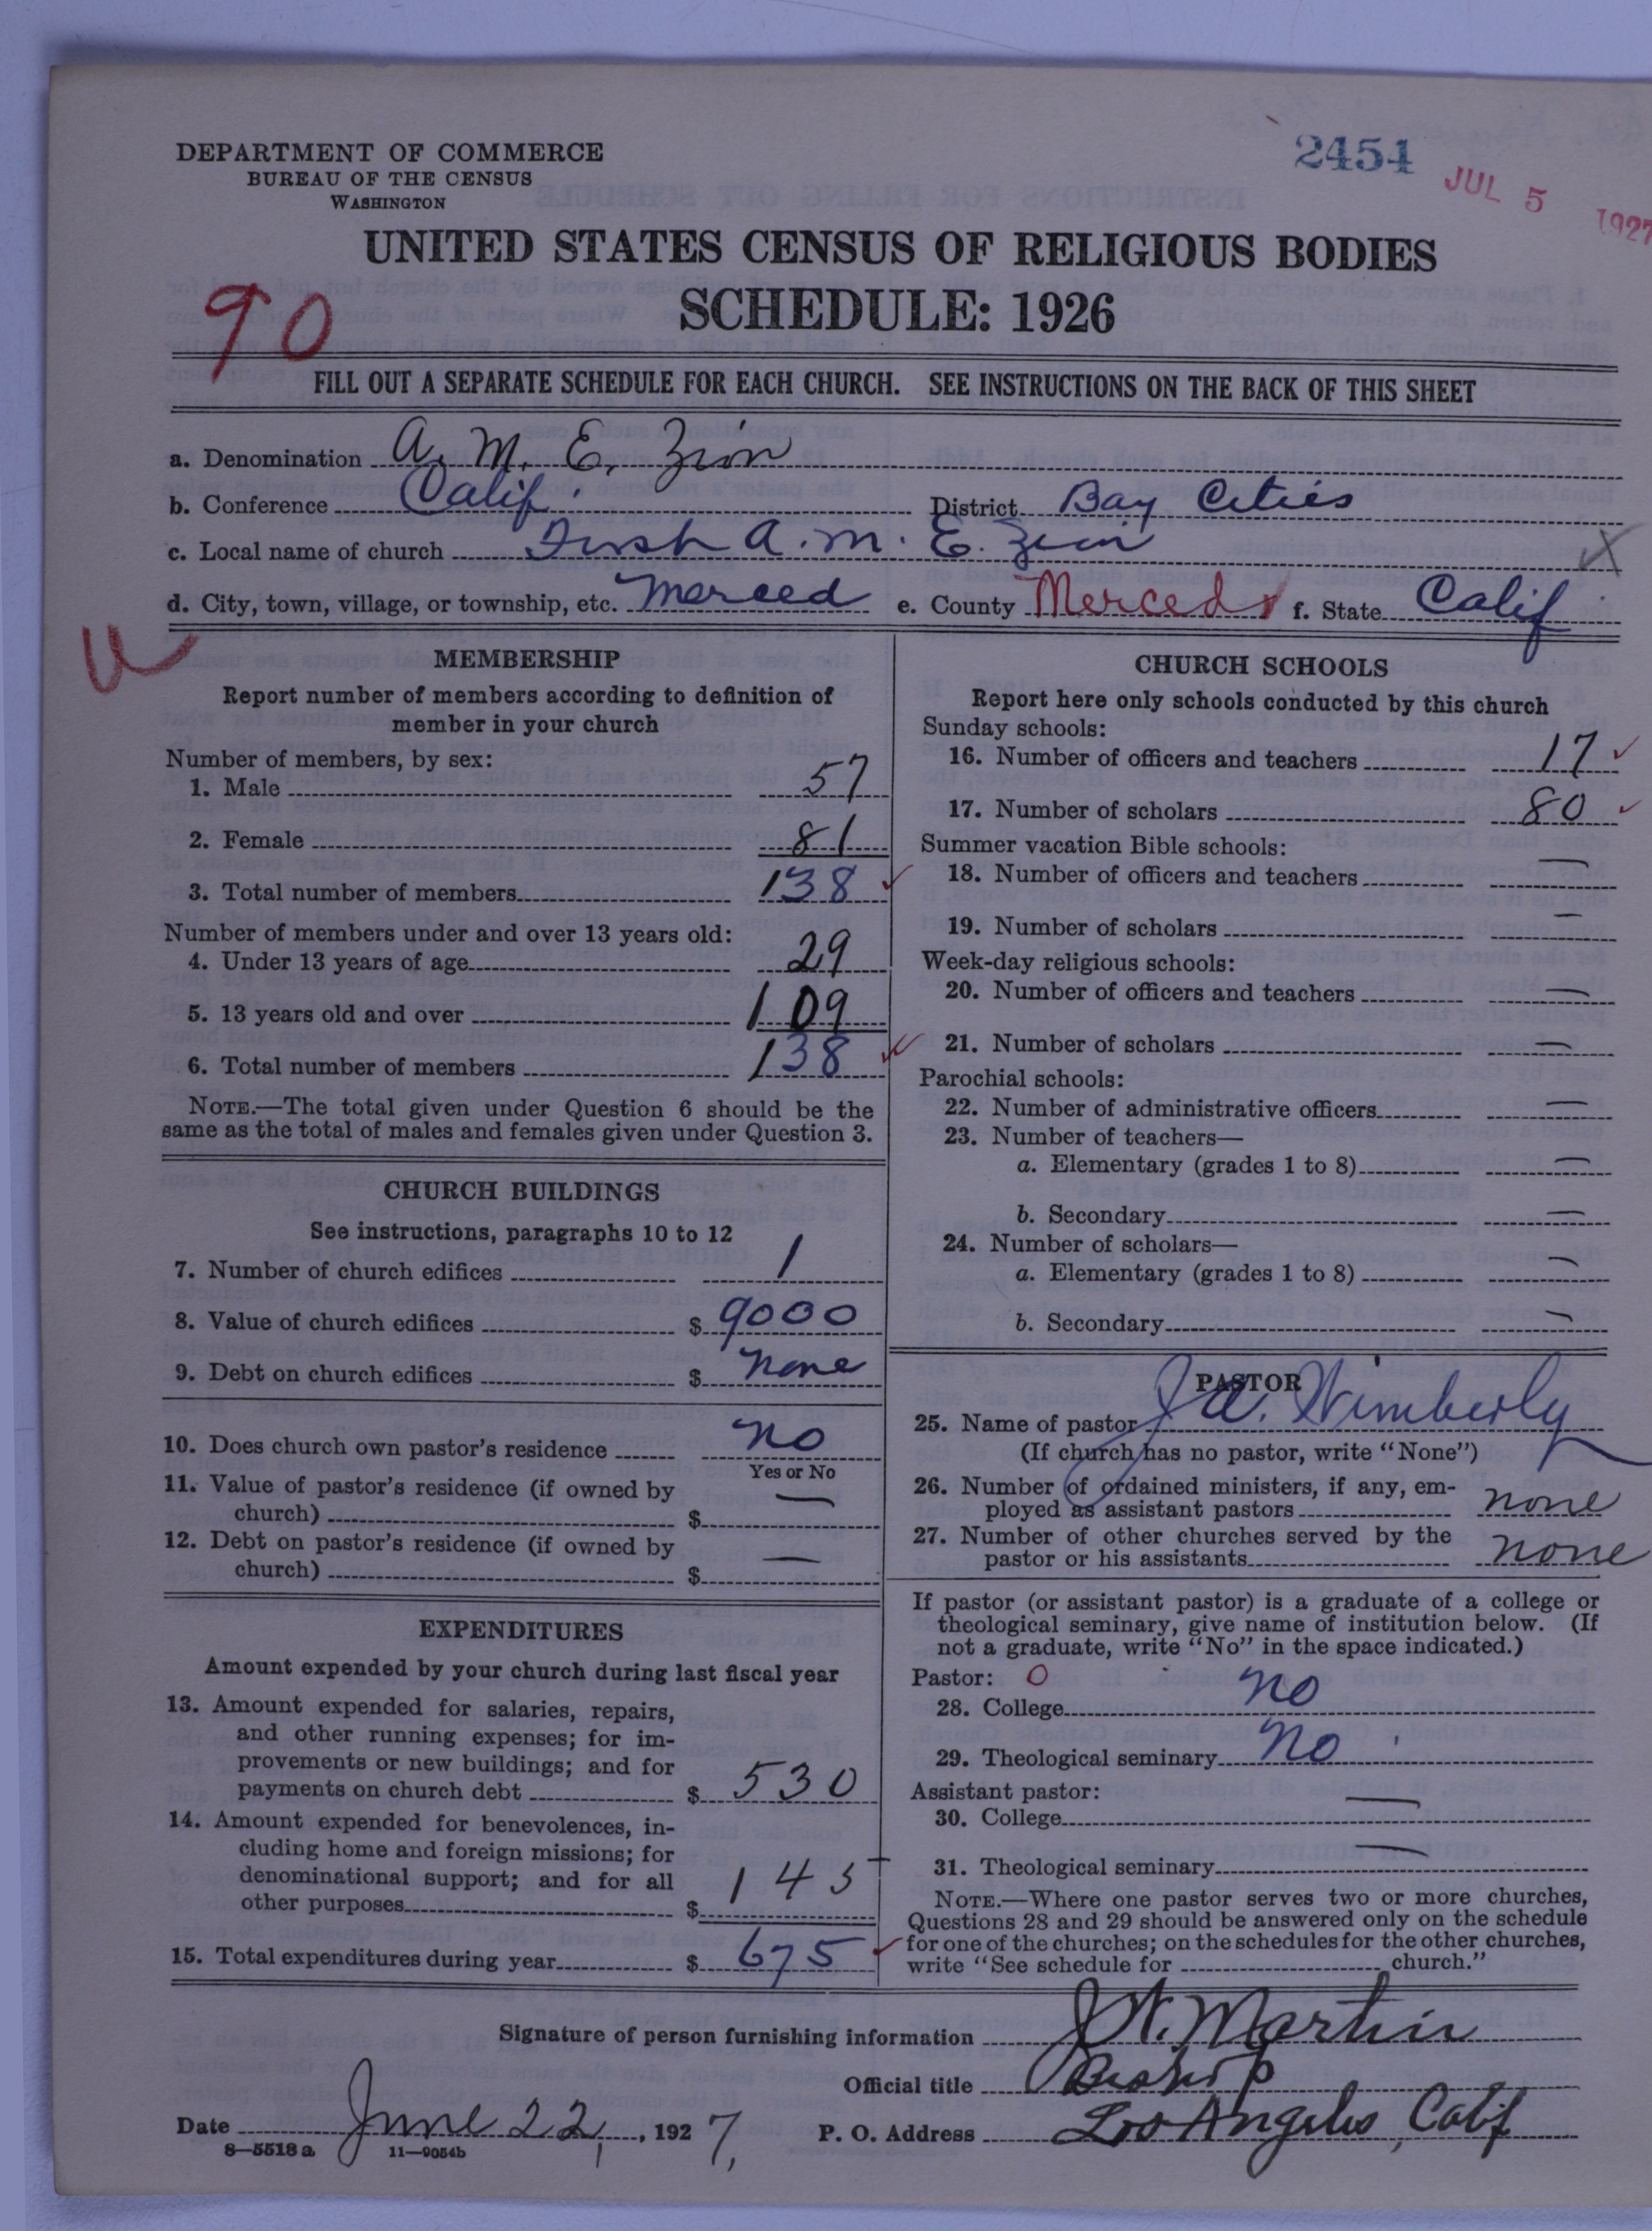 2454
JUL 5 1927
DEPARTMENT OF COMMERCE
BUREAU OF THE CENSUS
WASHINGTON
UNITED STATES CENSUS OF RELIGIOUS BODIES
SCHEDULE: 1926
90
FILL OUT A SEPARATE SCHEDULE FOR EACH CHURCH. SEE INSTRUCTIONS ON THE BACK OF THIS SHEET
a. Denomination A. M. E. Zion
b. Conference Calif. District Bay Cities
c. Local name of church First A. M. E. Zion
d. City, town, village, or township, etc. Merced e. County Merced f. State Calif
MEMBERSHIP
Report number of members according to definition of
member in your church
Number of members, by sex:
1. Male 57
2. Female 81
3. Total number of members 138
Number of members under and over 13 years old:
4. Under 13 years of age 29
5. 13 years old and over 109
6. Total number of members 138
NOTE.—The total given under Question 6 should be the
same as the total of males and females given under Question 3.
CHURCH BUILDINGS
See instructions, paragraphs 10 to 12
7. Number of church edifices 1
8. Value of church edifices $ 9000
9. Debt on church edifices $ none
10. Does church own pastor's residence no
Yes or No
11. Value of pastor's residence (if owned by
church) $ —
12. Debt on pastor's residence (if owned by
church) $ —
EXPENDITURES
Amount expended by your church during last fiscal year
13. Amount expended for salaries, repairs,
and other running expenses; for im-
provements or new buildings; and for
payments on church debt $ 530
14. Amount expended for benevolences, in-
cluding home and foreign missions; for
denominational support; and for all
other purposes $ 145
15. Total expenditures during year $ 675
CHURCH SCHOOLS
Report here only schools conducted by this church
Sunday schools:
16. Number of officers and teachers 17
17. Number of scholars 80
Summer vacation Bible schools:
18. Number of officers and teachers —
19. Number of scholars —
Week-day religious schools:
20. Number of officers and teachers —
21. Number of scholars —
Parochial schools:
22. Number of administrative officers —
23. Number of teachers—
a. Elementary (grades 1 to 8) —
b. Secondary —
24. Number of scholars—
a. Elementary (grades 1 to 8) —
b. Secondary —
PASTOR
25. Name of pastor J. A. Wimberly
(If church has no pastor, write "None")
26. Number of ordained ministers, if any, em-
ployed as assistant pastors none
27. Number of other churches served by the
pastor or his assistants none
If pastor (or assistant pastor) is a graduate of a college or
theological seminary, give name of institution below. (If
not a graduate, write "No" in the space indicated.)
Pastor: 0
28. College no
29. Theological seminary No
Assistant pastor:
30. College —
31. Theological seminary —
NOTE.—Where one pastor serves two or more churches,
Questions 28 and 29 should be answered only on the schedule
for one of the churches; on the schedules for the other churches,
write "See schedule for church."
Signature of person furnishing information J. W. Martin
Official title Bishop
Date June 22, 1927, P. O. Address Los Angeles, Calif
8—5518a 11—9054b